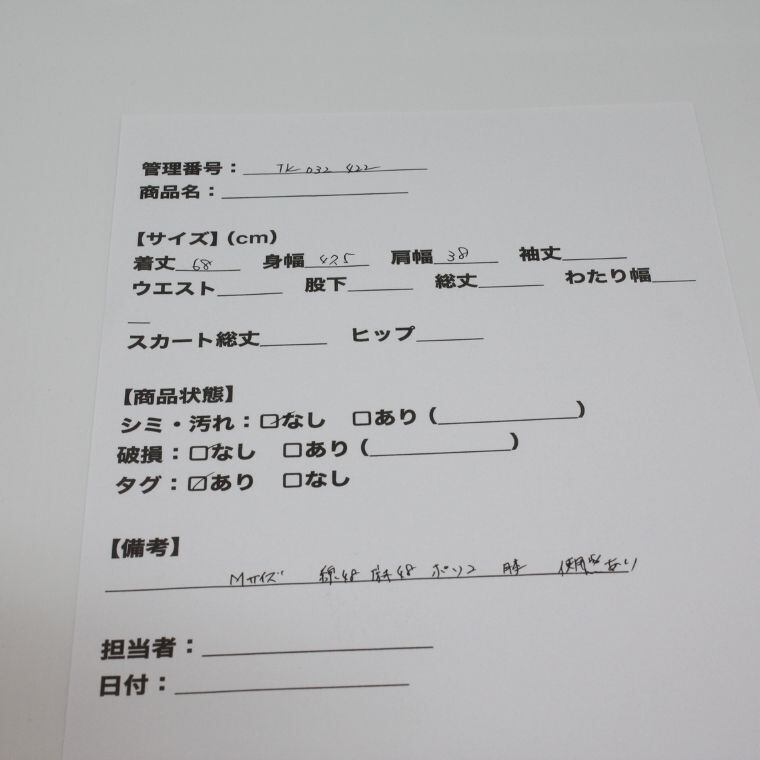 管理番号：TK 032 422
商品名：
【サイズ】(cm)
着丈 68 身幅 42.5 肩幅 38 袖丈
ウエスト 股下 総丈 わたり幅
スカート総丈 ヒップ
【商品状態】
シミ・汚れ：☑なし □あり（ ）
破損：☑なし □あり（ ）
タグ：☑あり □なし
【備考】
Mサイズ 綿48 麻48 ポリ
担当者：
日付：